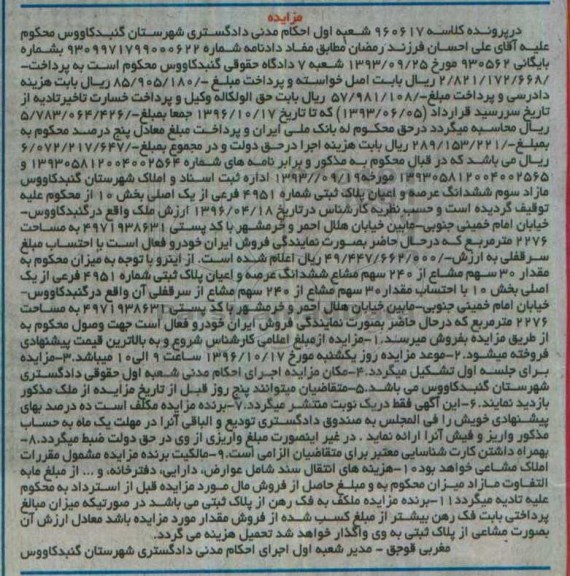 مزایده
درپرونده کلاسه ۹۶۰۶۱۷ شعبه اول احکام مدنی دادگستری شهرستان گنبدکاووس محکوم
علیه آقای علی احسان فرزند رمضان مطابق مفاد دادنامه شماره ۹۳۰۹۹۷۱۷۹۹۰۰۰۶۲۲ بشماره
بایگانی ۹۳۰۵۶۲ مورخ ۱۳۹۳/۰۹/۲۵ شعبه ۷ دادگاه حقوقی گنبدکاووس محکوم است به پرداخت-
/۲/۸۲۱/۱۷۲/۶۶۸ ریال بابت اصل خواسته و پرداخت مبلغ -/۸۵/۹۰۵/۱۸۰ ریال بابت هزینه
دادرسی و پرداخت مبلغ-/۵۷/۹۸۱/۱۰۸ ریال بابت حق الوکاله وکیل و پرداخت خسارت تاخیرتادیه از
تاریخ سررسید قرارداد (۱۳۹۳/۰۶/۰۵) که تا تاریخ ۱۳۹۶/۱۰/۱۷ جمعا بمبلغ-/۵/۷۸۳/۰۶۴/۴۲۶
ریال محاسبه میگردد درحق محکوم له بانک ملی ایران و پرداخت مبلغ معادل پنج درصد محکوم به
بمبلغ-/۲۸۹/۱۵۳/۲۲۱ ریال بابت هزینه اجرا درحق دولت و در مجموع بمبلغ-/۶/۰۷۲/۲۱۷/۶۴۷
ریال می باشد که در قبال محکوم به مذکور و برابر نامه های شماره ۱۳۹۳۰۵۸۱۲۰۰۴۰۰۲۵۶۴ و
۱۳۹۳۰۵۸۱۲۰۰۴۰۰۲۵۶۵ مورخه ۱۳۹۳/۰۹/۱۹ اداره ثبت اسناد و املاک شهرستان گنبدکاووس
مازاد سوم ششدانگ عرصه و اعیان پلاک ثبتی شماره ۴۹۵۱ فرعی از یک اصلی بخش ۱۰ از محکوم علیه
توقیف گردیده است و حسب نظریه کارشناس درتاریخ ۱۳۹۶/۰۴/۱۸ ارزش ملک واقع درگنبدکاووس-
خیابان امام خمینی جنوبی-مابین خیابان هلال احمر و خرمشهر با کد پستی ۴۹۷۱۹۳۸۶۳۱ به مساحت
۲۲۷۶ مترمربع که درحال حاضر بصورت نمایندگی فروش ایران خودرو فعال است با احتساب مبلغ
سرقفلی به ارزش-/۴۹/۴۴۷/۶۶۴/۰۰۰ ریال اعلام شده است. از اینرو با توجه به میزان محکوم به
مقدار ۳۰ سهم مشاع از ۲۴۰ سهم مشاع ششدانگ عرصه و اعیان پلاک ثبتی شماره ۴۹۵۱ فرعی از یک
اصلی بخش ۱۰ با احتساب مقدار ۳۰ سهم مشاع از ۲۴۰ سهم مشاع از سرقفلی آن واقع درگنبدکاووس-
خیابان امام خمینی جنوبی-مابین خیابان هلال احمر و خرمشهر با کد پستی ۴۹۷۱۹۳۸۶۳۱ به مساحت
۲۲۷۶ مترمربع که درحال حاضر بصورت نمایندگی فروش ایران خودرو فعال است جهت وصول محکوم به
از طریق مزایده بفروش میرسد.۱-مزایده ازمبلغ اعلامی کارشناس شروع و به بالاترین قیمت پیشنهادی
فروخته میشود.۲-موعد مزایده روز یکشنبه مورخ ۱۳۹۶/۱۰/۱۷ ساعت ۹ الی۱۰ میباشد.۳-مزایده
برای جلسه اول تشکیل میگردد.۴-مکان مزایده اجرای احکام مدنی شعبه اول حقوقی دادگستری
شهرستان گنبدکاووس می باشد.۵-متقاضیان میتوانند پنج روز قبل از تاریخ مزایده از ملک مذکور
بازدید نمایند.۶-این آگهی فقط دریک نوبت منتشر میگردد.۷-برنده مزایده مکلف است ده درصد بهای
پیشنهادی خویش را فی المجلس به صندوق دادگستری تودیع و الباقی آنرا در مهلت یک ماه به حساب
مذکور واریز و فیش آنرا ارائه نماید . در غیر اینصورت مبلغ واریزی از وی در حق دولت ضبط میگردد.۸-
بهمراه داشتن کارت شناسایی معتبر برای متقاضیان الزامی است.۹-مالکیت برنده مزایده مشمول مقررات
املاک مشاعی خواهد بود۱۰-هزینه های انتقال سند شامل عوارض، دارایی، دفترخانه، و ... از مبلغ مابه
التفاوت مازاد میزان محکوم به و مبلغ حاصل از فروش مال مورد مزایده قبل از استرداد به محکوم
علیه تادیه میگردد۱۱-برنده مزایده ملکف به فک رهن از پلاک ثبتی می باشد در صورتیکه میزان مبالغ
پرداختی بابت فک رهن بیشتر از مبلغ کسب شده از فروش مقدار مورد مزایده باشد معادل ارزش آن
بصورت مشاعی از پلاک ثبتی به وی واگذار خواهد شد تحمیل هزینه می گردد.
مغربی قوجق - مدیر شعبه اول اجرای احکام مدنی دادگستری شهرستان گنبدکاووس